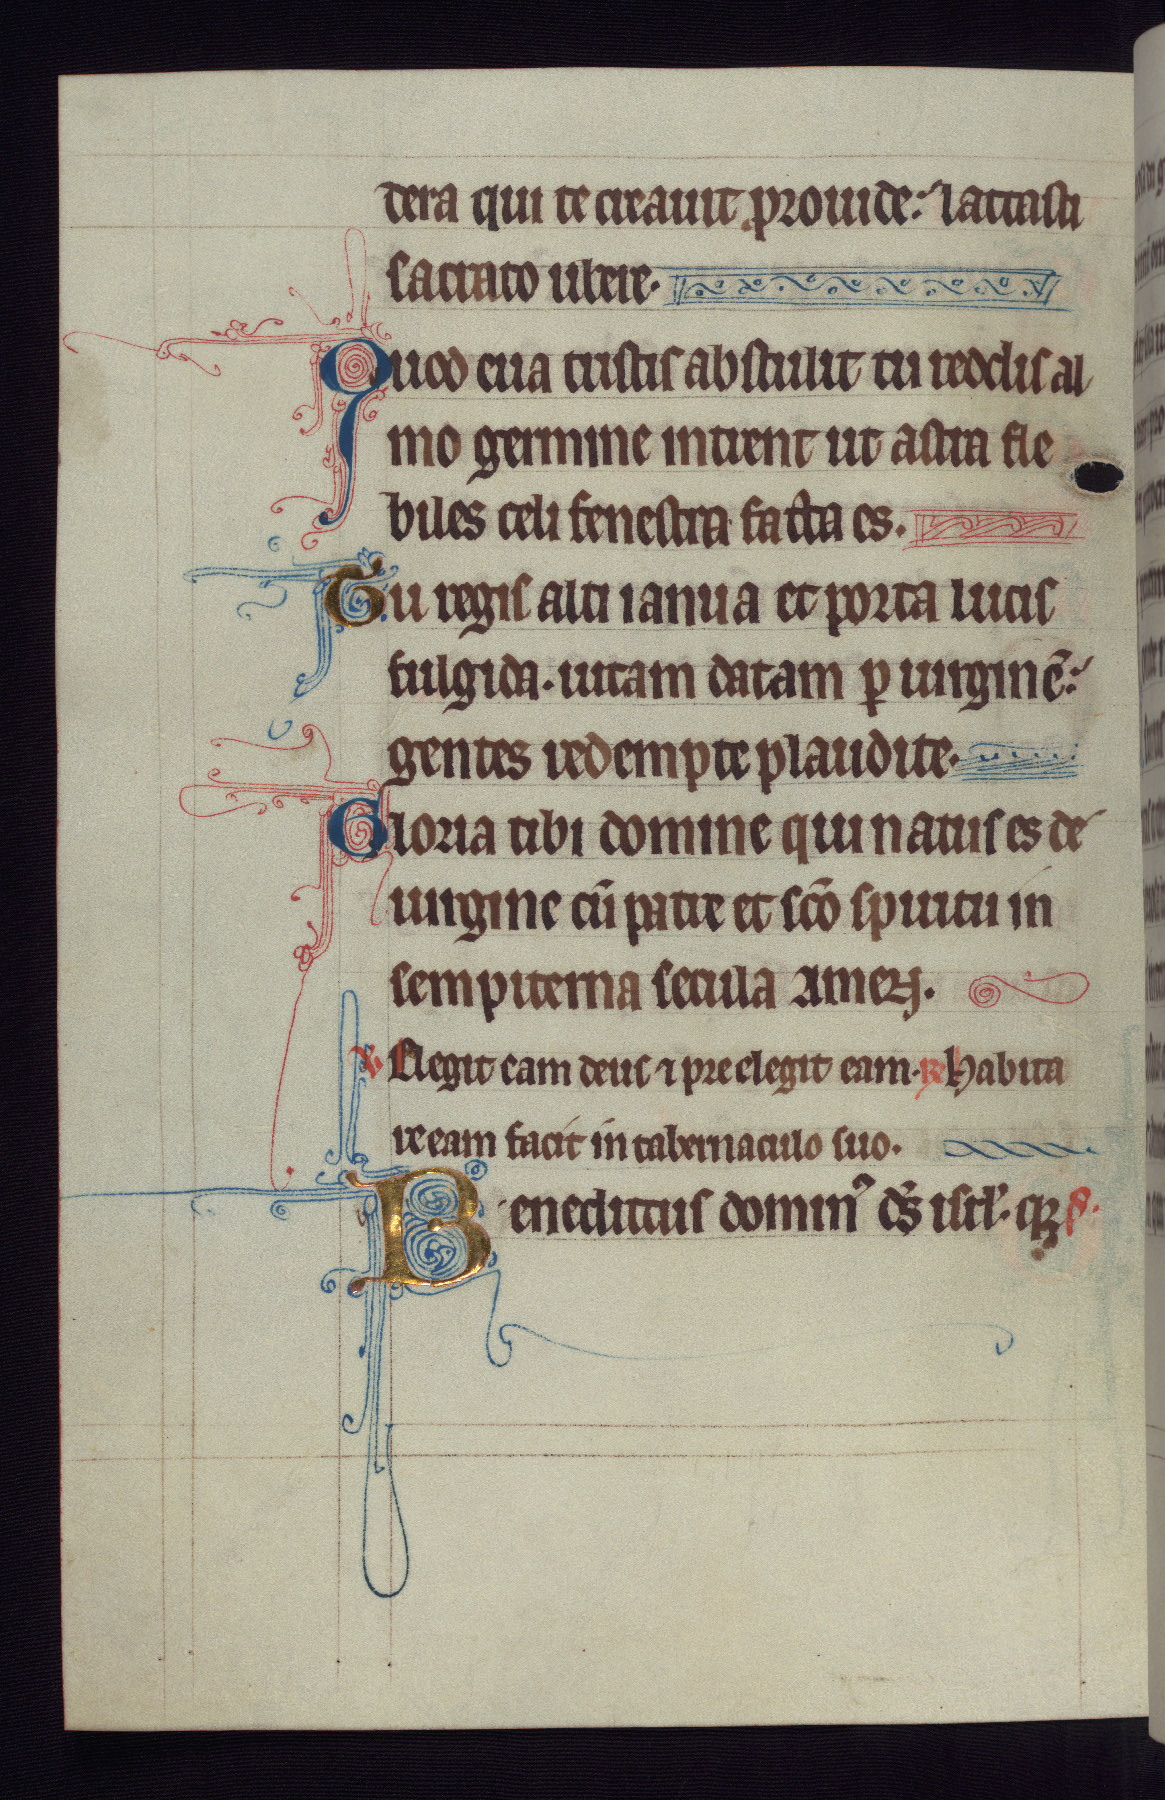 dera qui te creauit prouide: lactasti
sacrato ubere.
Quod eua tristis abstulit tu reddis al
mo germine intrent ut astra fle
biles celi fenestra facta es.
Tu regis alti ianua et porta lucis
fulgida. uitam datam ꝑ uirginē:
gentes redempte plaudite.
Gloria tibi domine qui natus es de
uirgine cū patre et sc̄o spiritu in
sempiterna secula amen.
℣ Elegit eam deus ⁊ preelegit eam. ℟ habita
re eam facit in tabernaculo suo.
Benedictus dominꝰ d̄s isrl̓. q̓